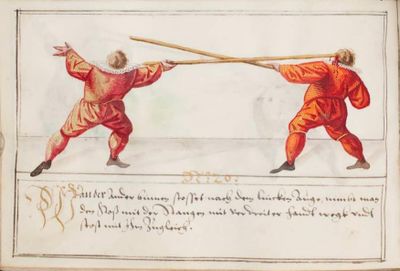 No 20.
Wan der ander binnen stosset nach dem lincken Auge, nimbt man
den Stoß mit der Stangen mit verwenter handt wegk vndt
stost mit ihm zugleich.